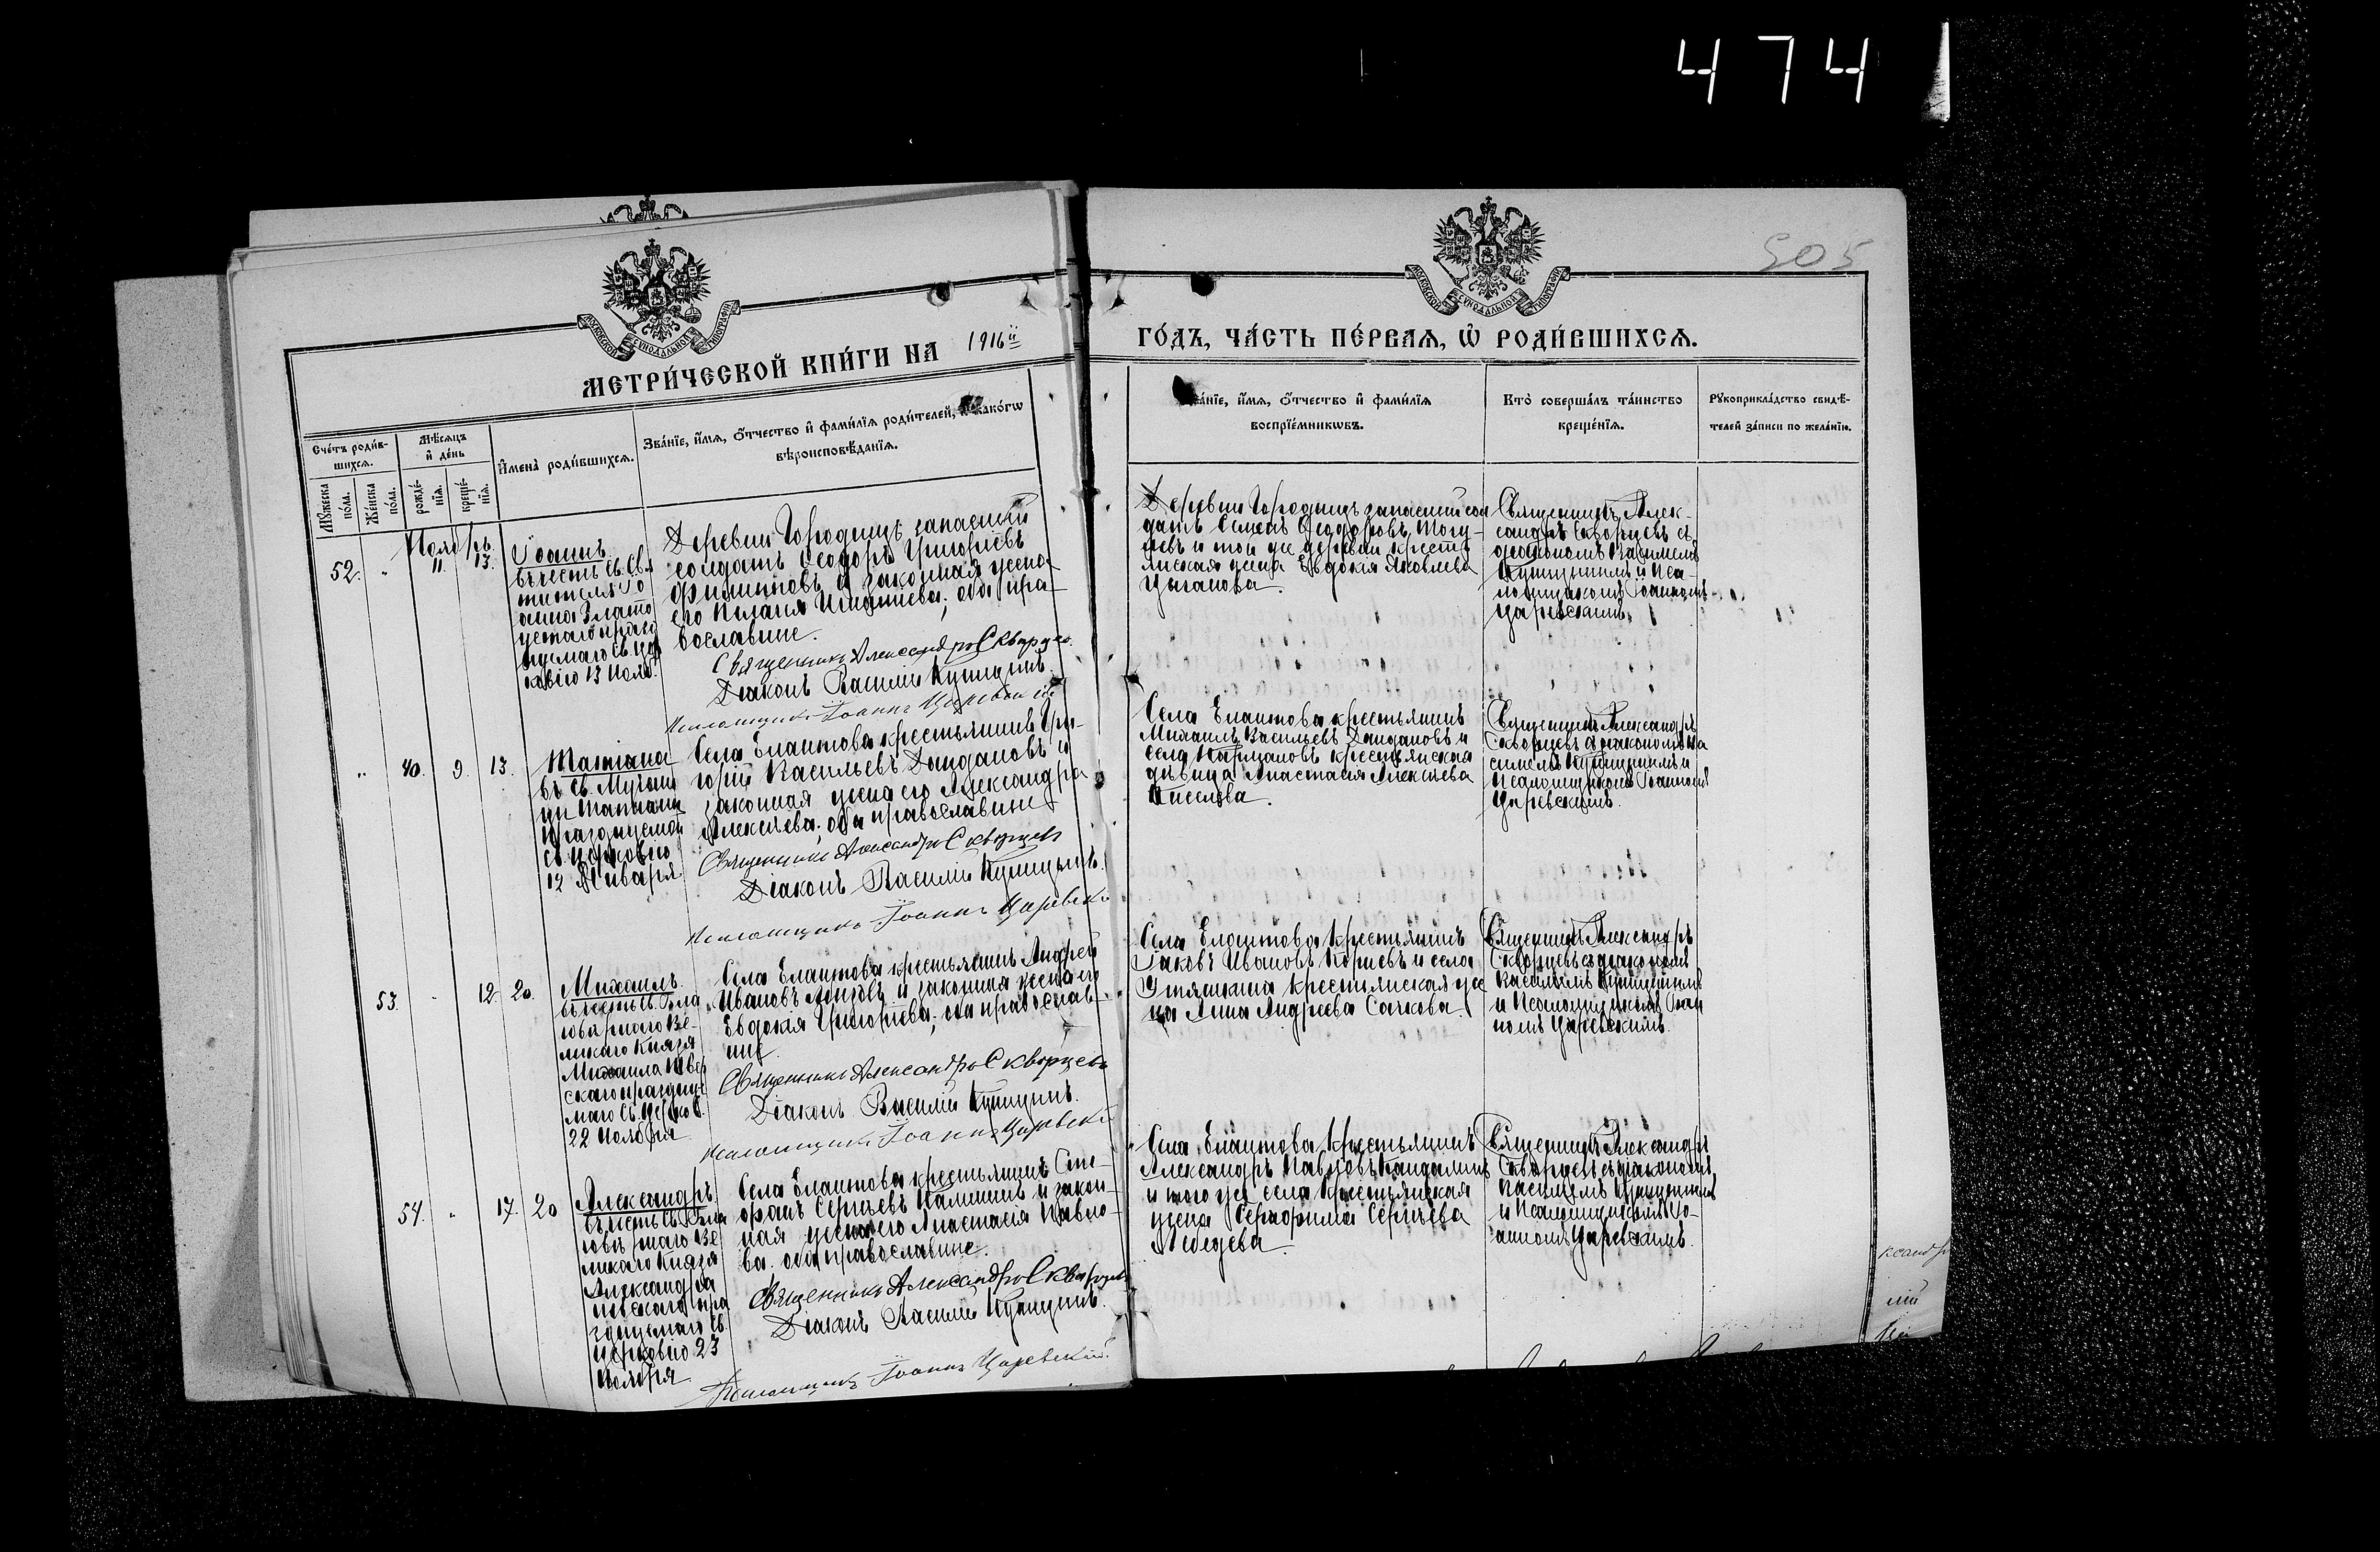 474
505
МОСКОВСКОЙ СУНОДАЛЬНОЙ ТИПОГРАФІИ
МОСКОВСКОЙ СУНОДАЛЬНОЙ ТИПОГРАФІИ
МЕТРИ́ЧЕСКОЙ КНИ́ГИ НА 1916й
ГО́ДЪ, ЧА́СТЬ ПЕ́РВАѦ, Ѡ҆ РОДИ́ВШИХСѦ.
Сче́тъ роди́в-
шихсѧ.
Мꙋ́жеска
по́ла.
Же́нска
по́ла.
Мѣ́сѧцъ
и҆ де́нь
рожде́-
нїѧ.
креще́-
нїѧ.
И҆мена̀ роди́вшихсѧ.
Зва́нїе, и҆́мѧ, о҆́тчество и҆ фами́лїѧ роди́телей, и҆ како́гѡ
вѣроисповѣ́данїѧ.
Зва́нїе, и҆́мѧ, о҆́тчество и҆ фами́лїѧ
воспрїе́мникѡвъ.
Кто̀ соверша́лъ та́инство
креще́нїѧ.
Рꙋкоприкла́дство свидѣ́-
телей за́писи по жела́нїю.
Ноябрь
52. " 11. 13.
Іоаннъ
въ честь Св. Свя
тителя Іо
анна Злато
устаго празд
нуемаго Св. Цер
ковію 13 Нояб.
Деревни Городищъ запасный
солдатъ Ѳеодоръ Григорьевъ
и законная жена
его Пелагія Игнатіева; оба пра-
вославные.
Священникъ Александръ Скворцевъ
Діаконъ Василій Купицынъ.
Псаломщикъ Іоаннъ Царевскій
Деревни Городищъ запасный сол
датъ Семенъ Ѳеодоровъ
и той же деревни кресть
янская жена Евдокія Яковлева
Цыганова.
Священникъ Алек-
сандръ Скворцевъ съ
діакономъ Василіемъ
и Пса-
ломщикомъ Іоанномъ
Царевскимъ.
" 40. 9. 13.
Татіана
въ св. Мучени
цы Татіаны
празднуемой
Св. Церковію
12 Января
Села Елаптова крестьянинъ Гри-
горій Васильевъ Дандановъ и
законная жена его Александра
Алексѣева; оба православные
Священникъ Александръ Скворцевъ
Діаконъ Василій Купицынъ.
Псаломщикъ Іоаннъ Царевскій
Села Елаптова крестьянинъ
Михаилъ Васильевъ Дандановъ и
села крестьянская
дѣвица Анастасія Алексѣева
Киселева.
Священникъ Александръ
Скворцевъ съ діакономъ Ва
силіемъ и
Псаломщикомъ Іоанномъ
Царевскимъ.
53. " 12 20.
Михаилъ
въ честь Св. Бла
говѣрнаго Ве-
ликаго Князя
Михаила Твер
скаго праздну
маго Св. Церков.
22 Ноября
Села Елаптова крестьянинъ Андрей
Ивановъ и законная жена его
Евдокія Григорьева; оба православ-
ные
Священникъ Александръ Скворцевъ
Діаконъ Василій Купицынъ.
Псаломщикъ Іоаннъ Царевскій
Села Елаптова крестьянинъ
Іаковъ Ивановъ и села
крестьянская же
на Анна Андреева Сачкова.
Священникъ Александръ
Скворцевъ съ діакономъ
Василіемъ
и Псаломщикомъ Іоан
номъ Царевскимъ.
54. " 17 20
Александръ
въ честь Св. Бла
говѣрнаго Ве
ликаго Князя
Александра
Невскаго пра
зднуемаго Св.
Церковію 23
Ноября
Села Елаптова крестьянинъ Сте-
фанъ Сергѣевъ Калининъ и закон-
ная жена его Анастасія Павло-
ва. оба православные.
Священникъ Александръ Скворцевъ
Діаконъ Василій Купицынъ.
Псаломщикъ Іоаннъ Царевскій.
Села Елаптова крестьянинъ
Александръ Павловъ
и того же села крестьянская
жена Серафима Сергѣева
Лебедева.
Священникъ Александръ
Скворцевъ съ діакономъ
Василіемъ
и Псаломщикомъ Іо-
анномъ Царевскимъ.